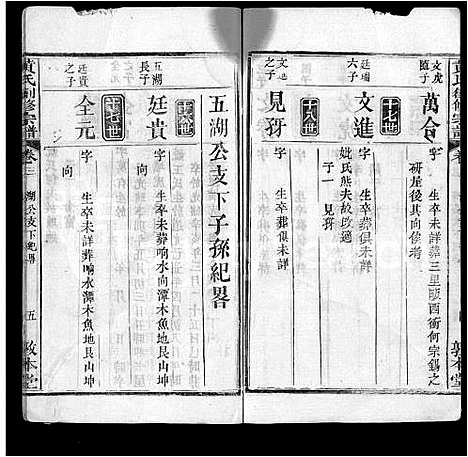 文虎
隨子
萬合
字
生卒未詳葬三里畈西衝何宗錫之
研屋後其向俟清
廷瑞
六子
十七世
文進
字
生卒葬俱未詳
妣氏熊夫故改適
子一
見犽
之子
十八世
見犽
字
生卒葬俱未詳
五湖公支下子孫紀畧
五湖
長子
十六世
廷貴
字
生卒未詳葬响水潭木魚地艮山坤
向
廷貴
之子
十七世
全元
字
生卒未詳葬响水潭木魚地艮山坤
向
黃氏創修宗譜
卷三
湖公支下紀畧
五
敦本堂